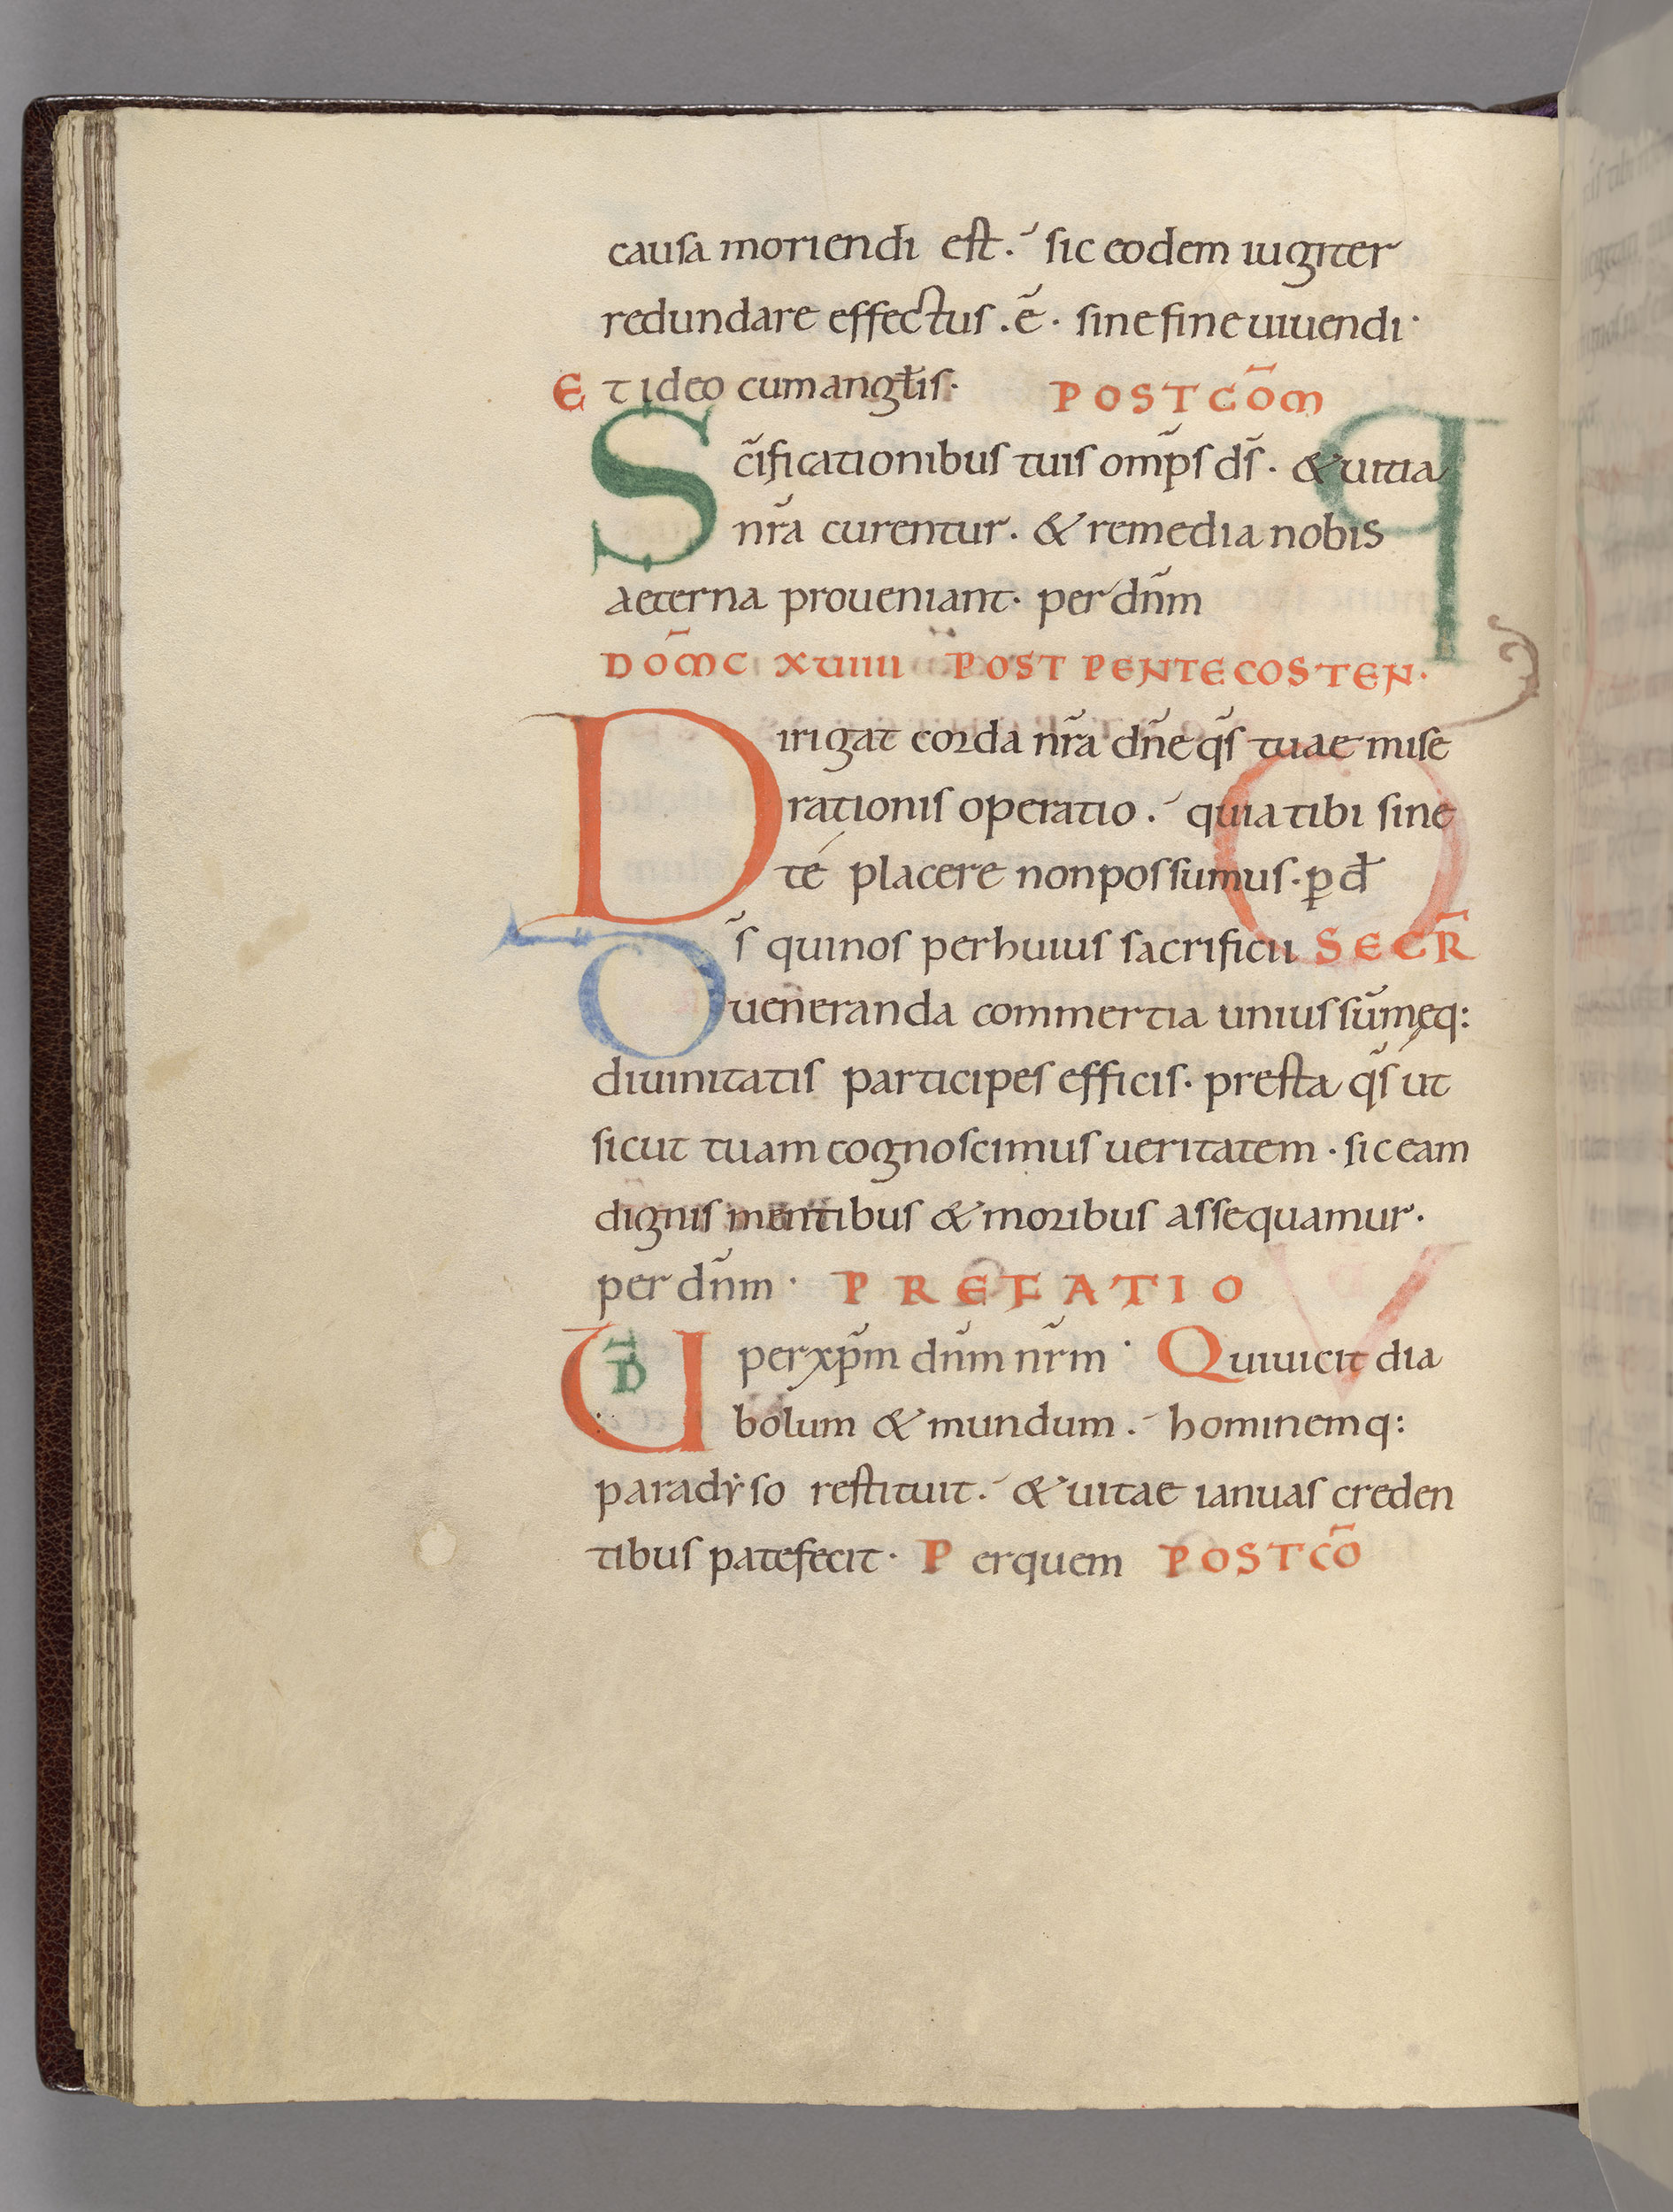 causa moriendi est. sic eodem iugiter
redundare effectus .ē. sine fine uiuendi.
Et ideo cum angłis. POSTCŌM
Sc̄ificationibus tuis omp̄s ds̄. & uitia
nr̄a curentur. & remedia nobis
aeterna proueniant. per dn̄m
DOM̄C XUIIII POST PENTECOSTEN.
Dirigat corda nr̄a dn̄e qs̄ tuae mise
rationis operatio. quia tibi sine
té placere non possumus. ꝑ đ
Ds̄ qui nos per huius sacrificii SECR̄
ueneranda commertia unius sūmęq:
diuinitatis participes efficis. presta qs̄ ut
sicut tuam cognoscimus ueritatem. sic eam
dignis mentibus & moribus assequamur.
per dn̄m. PREFATIO
UD̄ per xp̄m dn̄m nr̄m. Qui uicit dia
bolum & mundum. hominemq:
paradẏso restituit. & uitae ianuas creden
tibus patefecit. Per quem POSTCŌ